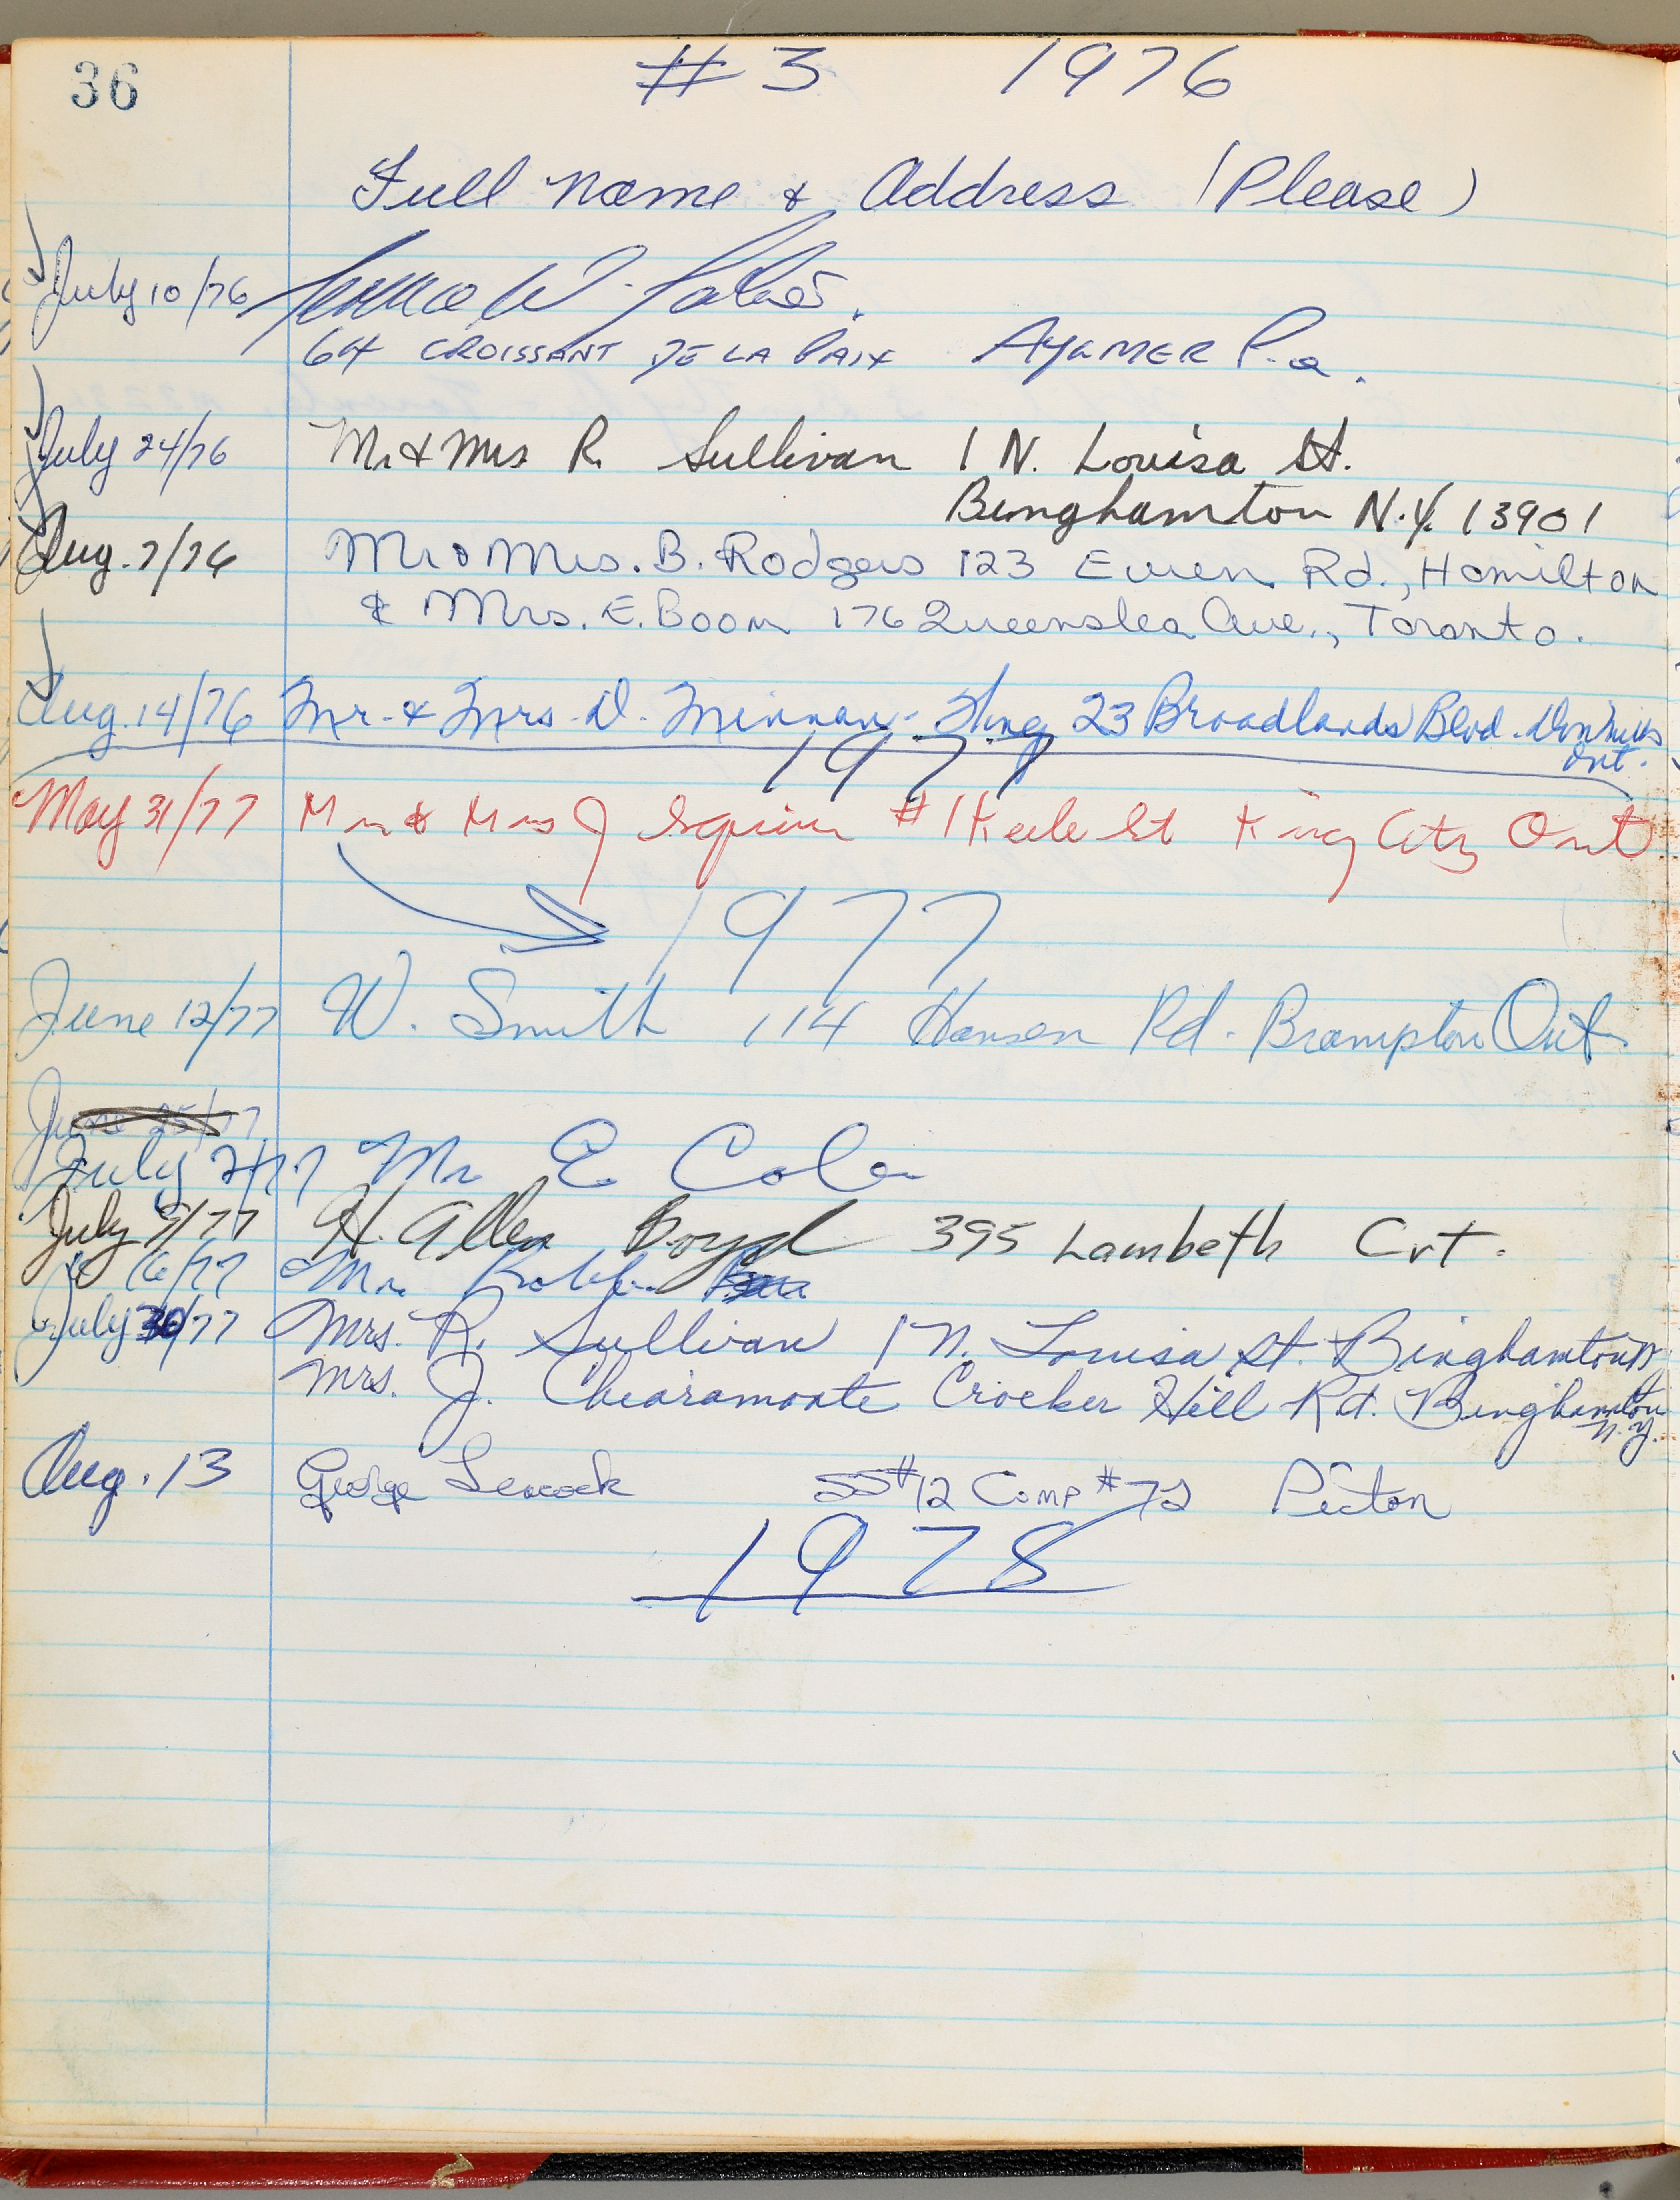 36
#3 1976
Full Name & Address (Please)
July 10/76 W.
64 CROISSANT DE LA PAIX AYLMER P.Q.
July 24/76 Mr & Mrs R. Sullivan 1 N. Louisa St.
Binghamton N.Y. 13901
Aug. 7/76 Mr & Mrs. B. Rodgers 123 Ewen Rd., Hamilton
& Mrs. E. Boom 176 Queenslea Ave., Toronto.
Aug. 14/76 Mr. & Mrs. D. 23 Broadlands Blvd. Don Mills
Ont.
1977
May 31/77 Mr & Mrs J Squire #1 Keele St King City Ont
1977
June 12/77 W. Smith 114 Hansen Rd. Brampton Ont.
June 25/77
July 2/77 Mr E Cole
July 9/77 H. Allen Boyd 395 Lambeth Crt.
16/77 Mr.
July 30/77 Mrs. R. Sullivan 1 N. Louisa St. Binghamton N.Y.
Mrs. J. Chiaramonte Crocker Hill Rd. Binghamton
N.Y.
Aug. 13 George Leacock SS#12 Comp #72 Picton
1978